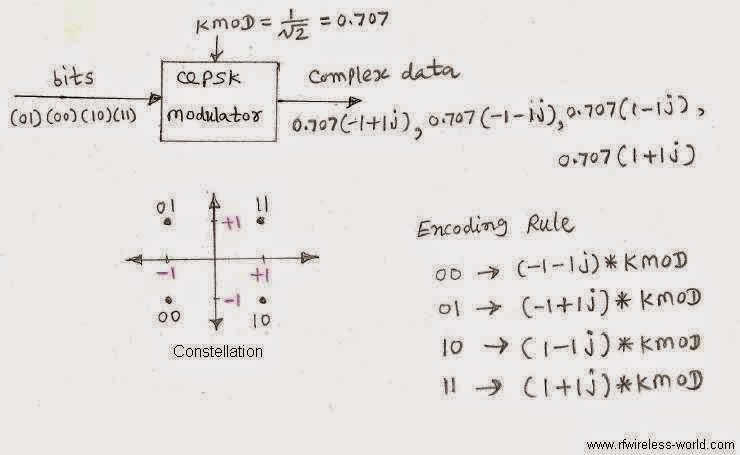 KMOD = 1/√2 = 0.707
bits
(01)(00)(10)(11)
QPSK
modulator
Complex data
0.707(-1+1j), 0.707(-1-1j), 0.707(1-1j),
0.707(1+1j)
01
11
+1
-1
+1
-1
00
10
Constellation
Encoding Rule
00 → (-1-1j)*KMOD
01 → (-1+1j)*KMOD
10 → (1-1j)*KMOD
11 → (1+1j)*KMOD
www.rfwireless-world.com